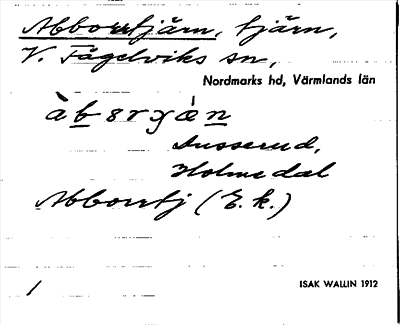 Abborrtjärn, tjärn,
V. Fågelviks sn,
Nordmarks hd, Värmlands län
Ausserud,
Holmedal
Abborrtj (E. k.)
1
ISAK WALLIN 1912